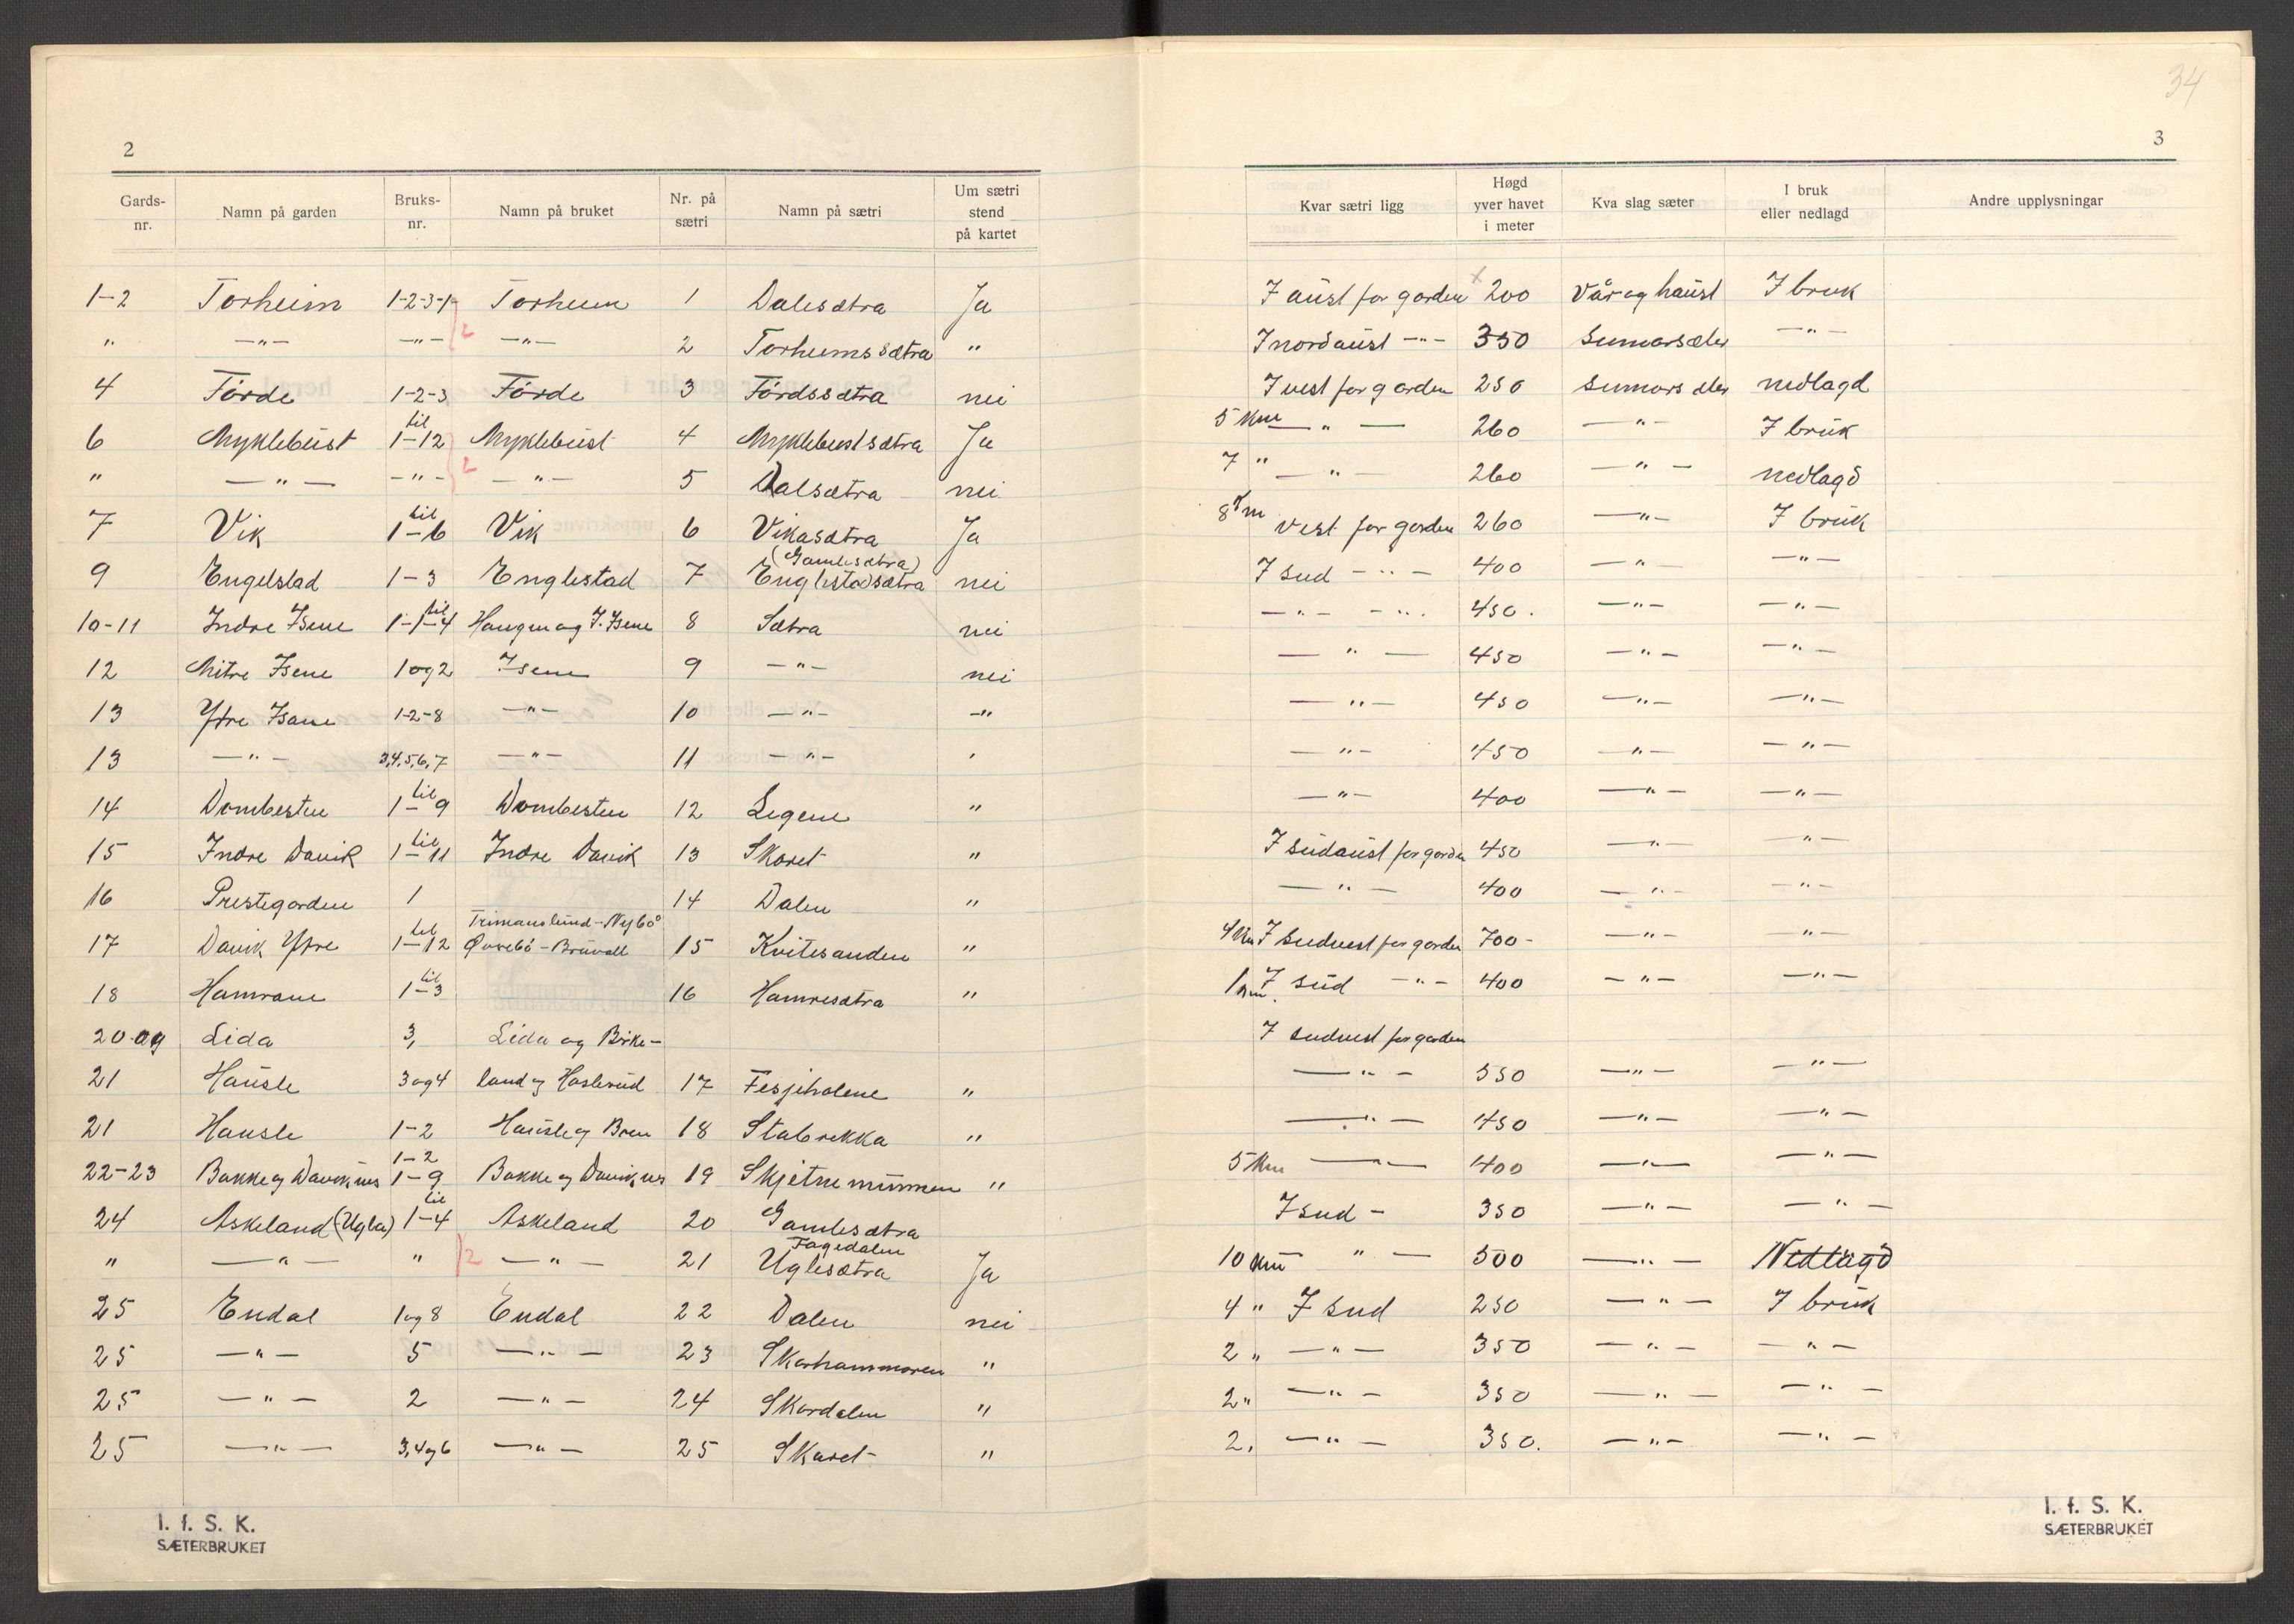 34
2
3
Gards-nr. Namn på garden Bruks-nr. Namn på bruket Nr. på sætri Namn på sætri Um sætri stend på kartet Kvar sætri ligg Høgd yver havet i meter Kva slag sæter I bruk eller nedlagd Andre upplysningar
1-2 Torheim 1-2-3-1- Torheim 1 Dalesætra Ja I aust for garden x 200 Vår og haust I bruk
" -"- -"- 2 -"- 2 Torheimssætra " I nordaust -"- 350 Sumarsæter -"-
4 Förde 1-2-3 Förde 3 Fördssætra nei I vest for garden 250 Sumarsæter nedlagd
6 Myklebust 1 til 12 Myklebust 4 Myklebustsætra Ja 5 Km -"- 260 -"- I bruk
" -"- -"- 2 -"- 5 Dalsætra nei 7 " -"- 260 -"- nedlagd
7 Vik 1 til 6 Vik 6 Vikasætra Ja 8 Km vest for garden 260 -"- I bruk
9 Engelstad 1-3 Englestad 7 (Gamlesætra) Englestadsætra nei I sud -"- 400 -"- -"-
10-11 Indre Isene 1-1 til 4 Haugen og I. Isene 8 Sætra nei -"- -"- 450. -"- -"-
12 Mitre Isene 1 og 2 Isene 9 -"- nei -"- 450 -"- -"-
13 Ytre Isane 1-2-8 -"- 10 -"- -" -"- 450 -"- -"-
13 -"- 3,4,5,6,7 -"- 11 -"- ' -"- 450 -"- -"-
14 Dombesten 1 til 9 Dombesten 12 Legene " -"- 400 -"- -"-
15 Indre Davik 1 til 11 Indre Davik 13 Skoret " I sudaust for garden 450 -"- -"-
16 Prestegarden 1 14 Dalen " -"- 400 -"- -"-
17 Davik Ytre 1 til 12 Trimanslund-Nybö Øvrebö-Bruvoll 15 Kvitesanden " 4 Km I sudvest for garden 700- -"- -"-
18 Hamrane 1 til 3 16 Hamresætra " 1 km. I sud -"- 400 -"- -"-
20 og Lida 3, Lida og Birke- I sudvest for garden
21 Hausle 3 og 4 land og Haslerud 17 Fesjeholene " -"- 350 -"- -"-
21 Hausle 1-2 Hausle og Bren 18 Stabrekka " -"- 450 -"- -"-
22-23 Bakke og Daviknes 1-2 1-9 Bakke og Daviknes 19 Skjetnemunnen " 5 Km -"- 400 -"- -"-
24 Askeland (Ugla) 1 til 4 Askeland 20 Gamlesætra I sud - 350 -"- -"-
" -"- " 2 -"- 21 Fagedalen Uglesætra Ja 10 Km " - 500 -"- Nedlagd
25 Endal 1 og 8 Endal 22 Dalen nei 4 " I sud 250 -"- I bruk
25 -"- 5 -"- 23 Skarhammaren " 2 " -"- 350 -"- -"-
25 -"- 2 -"- 24 Skardalen " 2 " -"- 350 -"- -"-
25 -"- 3,4 og 6 -"- 25 Skaret " 2, -"- 350. -"- -"-
I. f. S. K.
SÆTERBRUKET
I. f. S. K.
SÆTERBRUKET